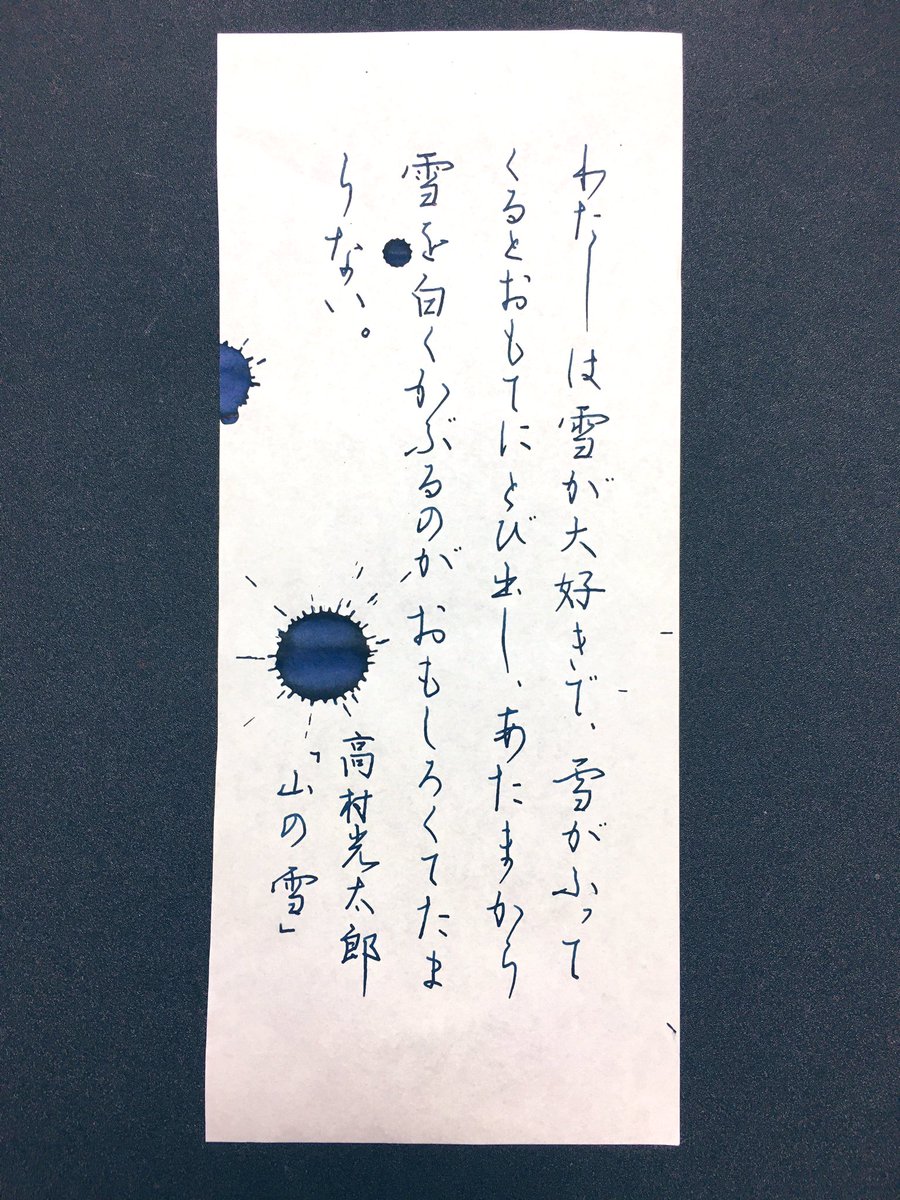 わたしは雪が大好きで、雪がふって
くるとおもてにとび出し、あたまから
雪を白くかぶるのがおもしろくてたま
らない。
高村光太郎
「山の雪」